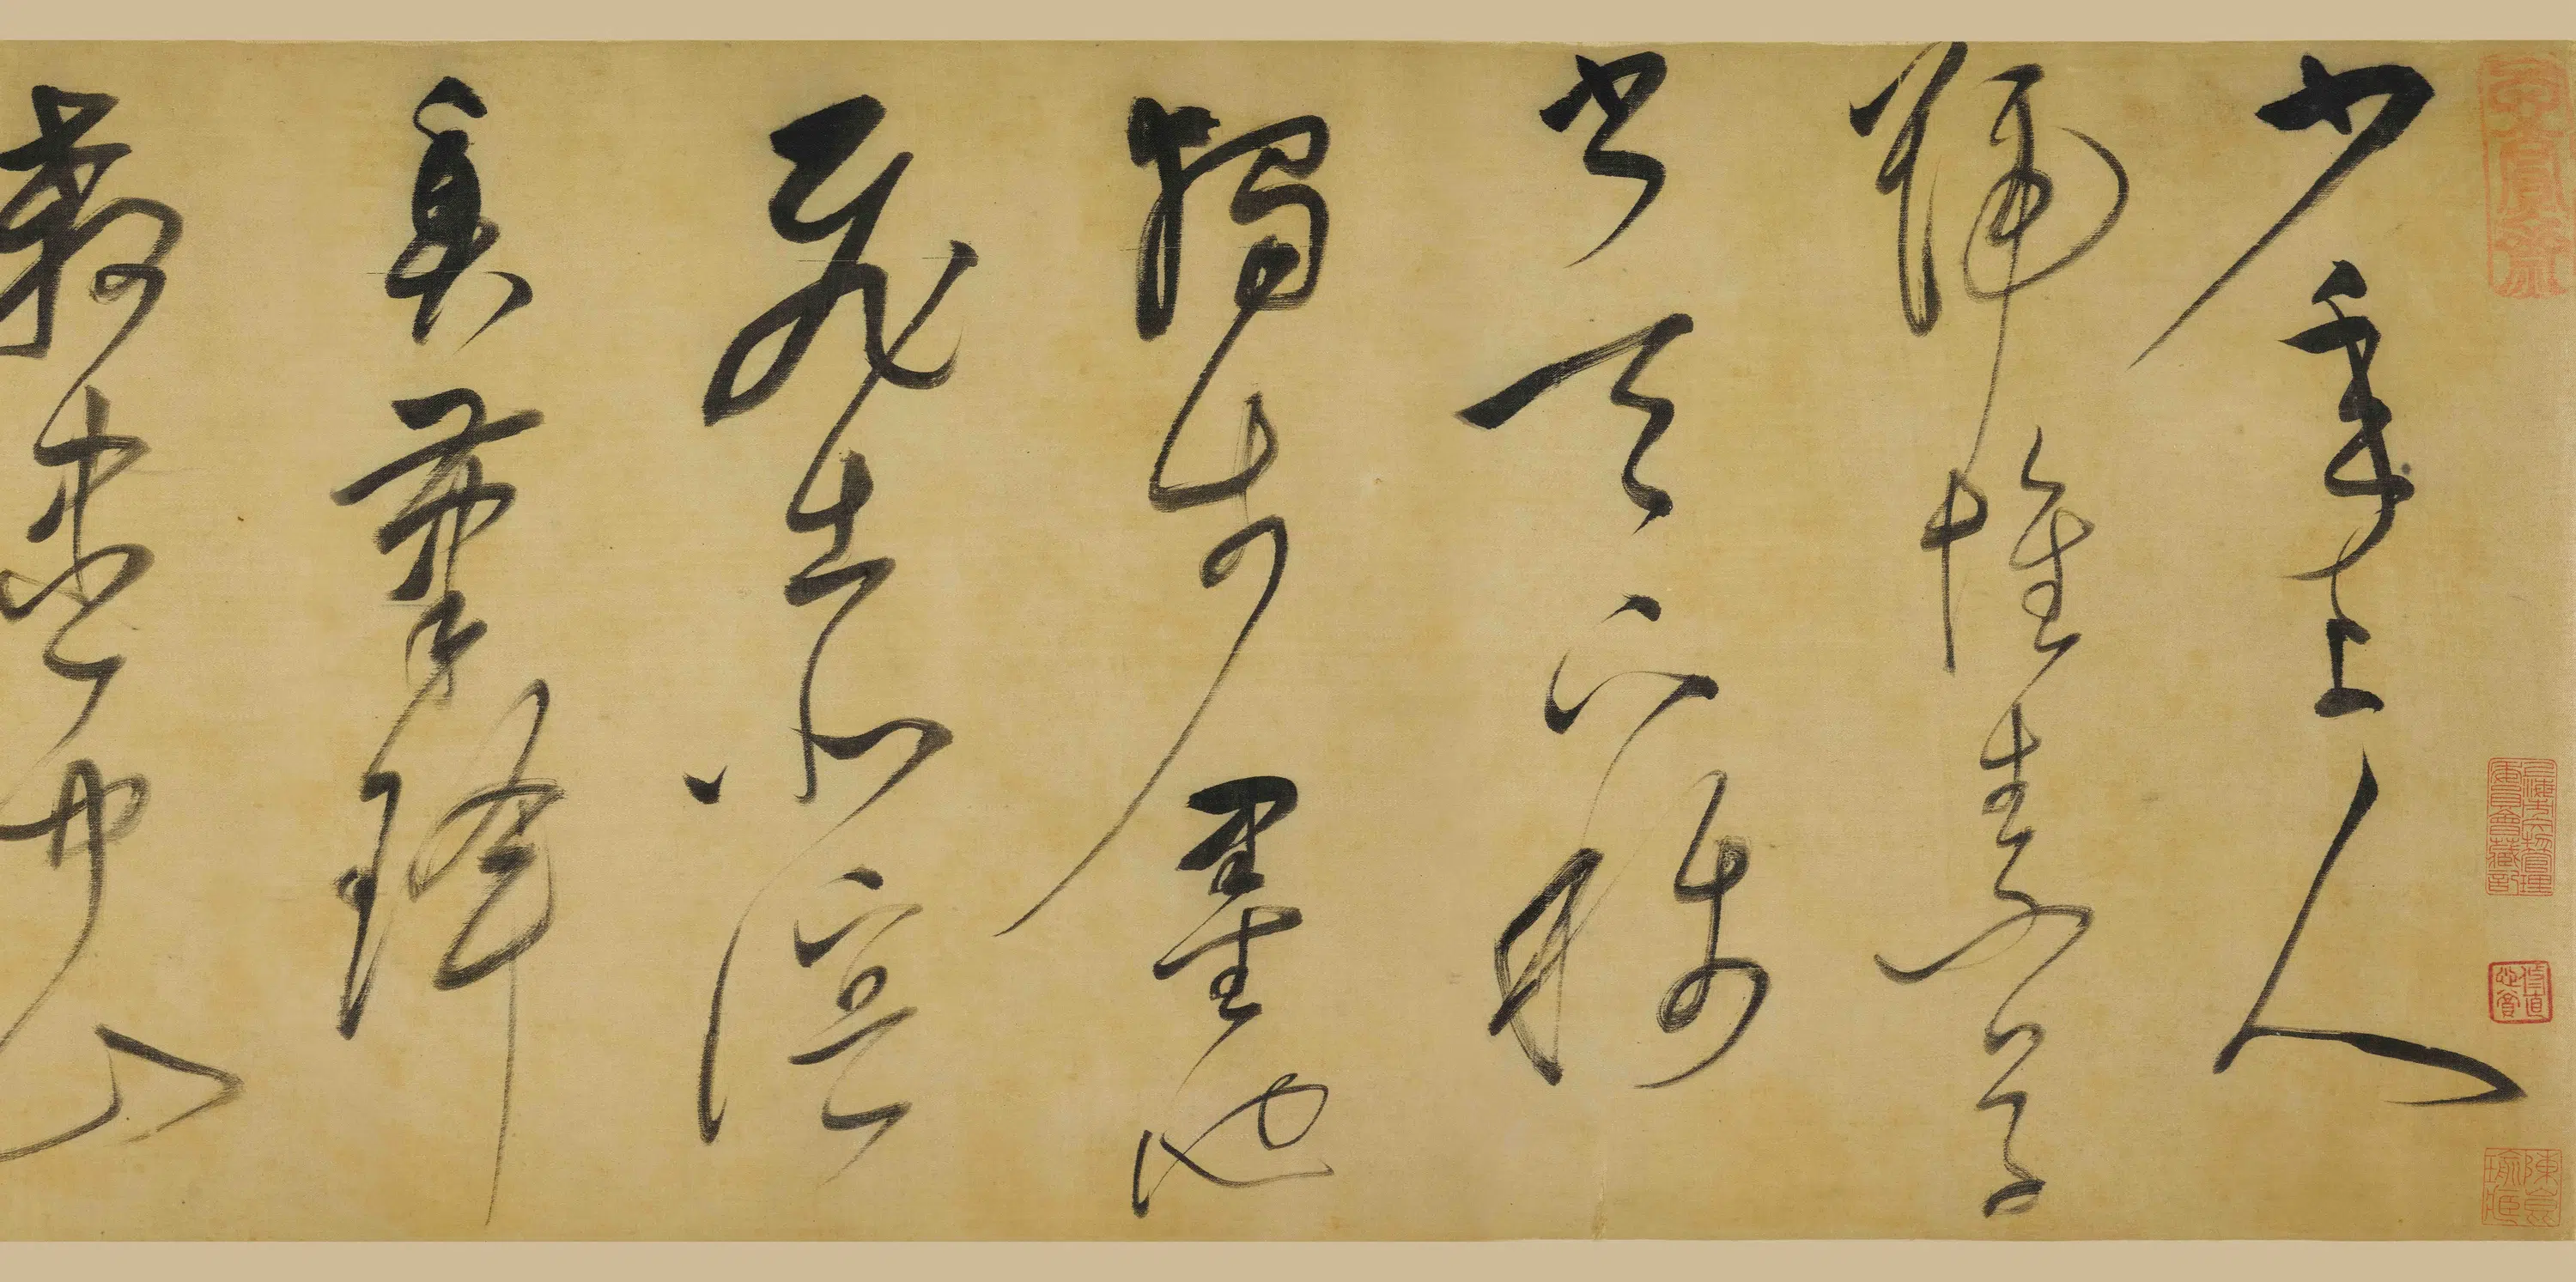 少年上人
號懷素草
書天下稱
獨步墨池
飛出北溟
魚筆鋒
殺盡中山